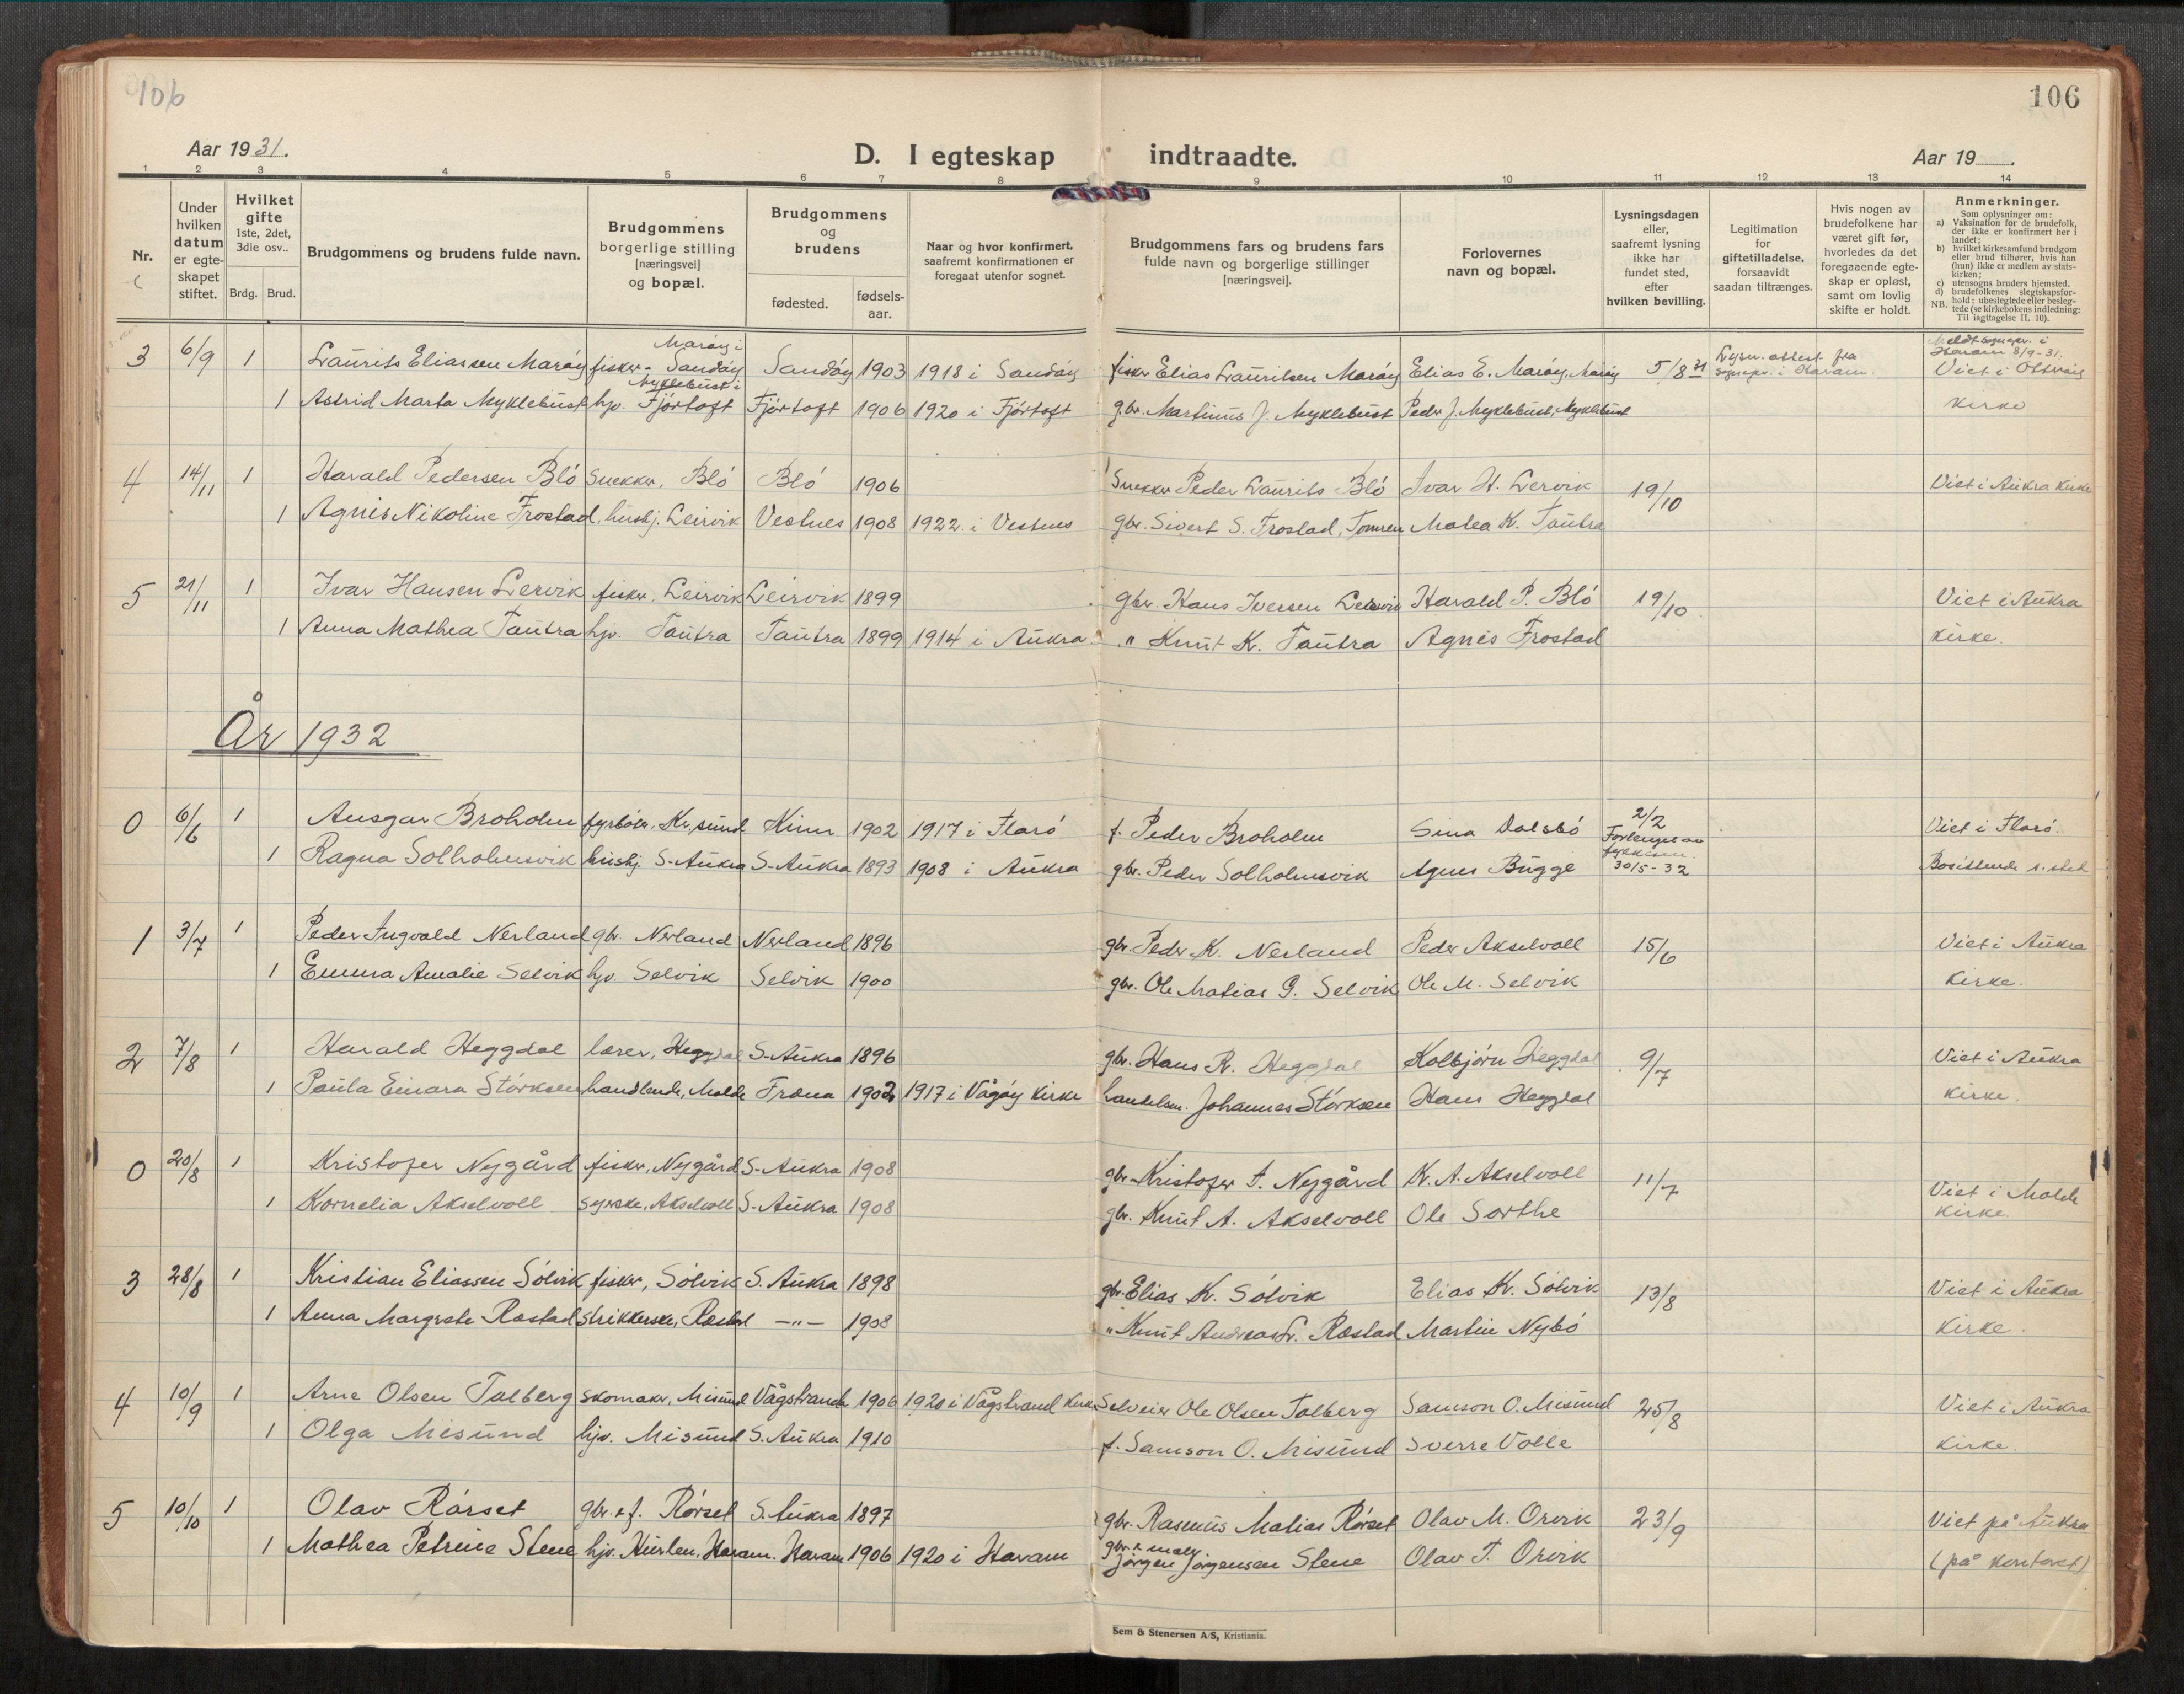 106
106
Aar 1931.
D. I egteskap indtraadte.
Aar 19
1 2 3 4 5 6 7 8 9 10 11 12 13 14
Nr.
Under hvilken datum er egte-skapet stiftet.
Hvilket gifte 1ste, 2det, 3die osv..
Brdg. Brud.
Brudgommens og brudens fulde navn.
Brudgommens borgerlige stilling [næringsvei] og bopæl.
Brudgommens og brudens
fødested. fødsels-aar.
Naar og hvor konfirmert, saafremt konfirmationen er foregaat utenfor sognet.
Brudgommens fars og brudens fars fulde navn og borgerlige stillinger [næringsvei].
Forlovernes navn og bopæl.
Lysningsdagen eller, saafremt lysning ikke har fundet sted, efter hvilken bevilling.
Legitimation for giftetilladelse, forsaavidt saadan tiltrænges.
Hvis nogen av brudefolkene har været gift før, hvorledes da det foregaaende egte-skap er opløst, samt om lovlig skifte er holdt.
Anmerkninger.
Som oplysninger om:
a) Vaksination for de brudefolk, der ikke er konfirmert her i landet;
b) hvilket kirkesamfund brudgom eller brud tilhører, hvis han (hun) ikke er medlem av stats-kirken;
c) utensogns bruders hjemsted.
d) brudefolkenes slegtskapsfor-hold: ubeslegtede eller besleg-tede (se kirkebokens indledning:
NB. Til iagttagelse II. 10).
3 6/9 1 Laurits Eliassen Marøy fisker - Marøy i Sandøy Sandøy 1903 1918 i Sandøy fisker Elias Lauritsen Marøy Elias E. Marøy, Marøy 5/8 31 Lysn. attest fra sognepr. i Haram. Meldt sognepr. i Haram 8/9-31. Viet i Otterøy
1 Astrid Marta Myklebust hjv. Myklebust i Fjørtoft Fjørtoft 1906 1920 i Fjørtoft g.br. Martinus J. Myklebust Peder J. Myklebust, Myklebust kirke
4 14/11 1 Harald Pedersen Blø Snekker, Blø Blø 1906 Snekker Peder Laurits Blø Ivar H. Lervik 19/10 Viet i Aukra kirke
1 Agnes Nikoline Frostad, hushj. Leirvik Vestnes 1908 1922 i Vestnes gbr. Sivert S. Frostad, Tomren Malea K. Tautra
5 21/11 1 Ivar Hansen Lervik fisker, Leirvik Leirvik 1899 gbr. Hans Iversen Lervik Harald P. Blø 19/10 Viet i Aukra
1 Anna Mathea Tautra hjv. Tautra Tautra 1899 1914 i Aukra " Knut K. Tautra Agnes Frostad kirke.
År 1932
0 6/6 1 Ansgar Broholm fyrbøter, Kr.sund Kinn 1902 1917 i Florø f. Peder Broholm Sina Dalsbø 2/2 Forlenget av 30/5-32 Viet i Florø.
1 Ragna Solholmsvik hushj. S-Aukra S-Aukra 1893 1908 i Aukra gbr. Peder Solholmsvik Agnes Bugge Bosittende s. sted
1 3/7 1 Peder Ingvald Nerland gbr. Nerland Nerland 1896 gbr. Peder K. Nerland Peder Akselvoll 15/6 Viet i Aukra
1 Emma Amalie Selvik hjv. Selvik Selvik 1900 gbr. Ole Matias G. Selvik Ole M. Selvik kirke.
2 7/8 1 Harald Heggdal lærer, Heggdal S-Aukra 1896 gbr. Hans R. Heggdal Kolbjørn Heggdal 9/7 Viet i Aukra
1 Paula Einara Størksen handlende, Molde Fræna 1902 1917 i Vågøy kirke handelsm. Johannes Størksen Hans Heggdal kirke.
0 20/8 1 Kristofer Nygård fisker, Nygård S-Aukra 1908 gbr. Kristofer A. Nygård K. A. Akselvoll 11/7 Viet i Molde
1 Kornelia Akselvoll syerske, Akselvoll S-Aukra 1908 gbr. Knut A. Akselvoll Ole Sorthe kirke.
3 28/8 1 Kristian Eliassen Sølvik fisker, Sølvik S. Aukra 1898 gbr. Elias K. Sølvik Elias K. Sølvik 13/8 Viet i Aukra
1 Anna Margrete Røstad strikkerske, Røstad —"— 1908 " Knut Andreas L. Røstad Martin Nybø kirke.
4 10/9 1 Arne Olsen Talberg skomaker, Misund Vågstranda 1906 1920 i Vågstrand kirke Selveier Ole Olsen Talberg Samson O. Misund 25/8 Viet i Aukra
1 Olga Misund hjv. Misund S. Aukra 1910 f. Samson O. Misund Sverre Volle kirke.
5 10/10 1 Olav Rørset gbr. & f. Rørset S. Aukra 1897 gbr. Rasmus Matias Rørset Olav M. Orvik 23/9 Viet på Aukra
1 Mathea Petrine Stene hjv. Hurlen, Haram. Haram 1906 1920 i Haram gbr. & maler Jørgen Jørgensen Stene Olav T. Orvik (på kontoret)
Sem & Stenersen A/S, Kristiania.